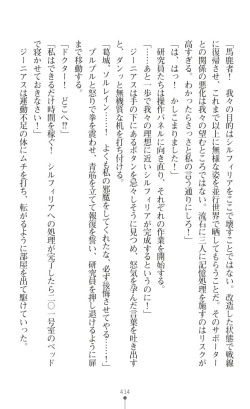 「馬鹿者！　我々の目的はシルフィリアをここで壊すことではない。改造した状態で戦線
に復帰させ、これまで以上に無様な姿を並行世界で晒してもらうことだ。そのサポーター
との関係の悪化は我々の望むところではない。流石に三人に記憶処理を施すのはリスクが
高すぎる。わかったらさっさと私の言う通りにしろ！」
「は、はっ！　かしこまりました！」
研究員たちは操作パネルに向き直り、それぞれの作業を開始する。
「……あと一歩で我々の理想に近いシルフィリアが完成するというのに！」
ジーニアスは手の下にあるボタンを忌々しげに見つめ、怒気を孕んだ言葉を吐き出す
と、ダンッと無機質な机を打ち付ける。
「葛城、ソルレイン……！　よくも私の邪魔をしてくれたな。必ず後悔させてやる……！」
プルプルと怒りで拳を震わせ、青筋を立てて報復を誓い、研究員を押し退けるように扉
まで移動する。
「ドクター！　どこへ！？」
「私はできるだけ時間を稼ぐ！　シルフィリアへの処理が完了したら二〇一号室のベッド
で寝かせておきなさい！」
ジーニアスは運動不足の体にムチを打ち、転がるように部屋を出て駆けていった。
414